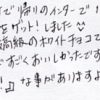 で帰りのインターで
をゲット!しました
高級のホワイトチョコで
すごくおいしかったです
な事がありますよ